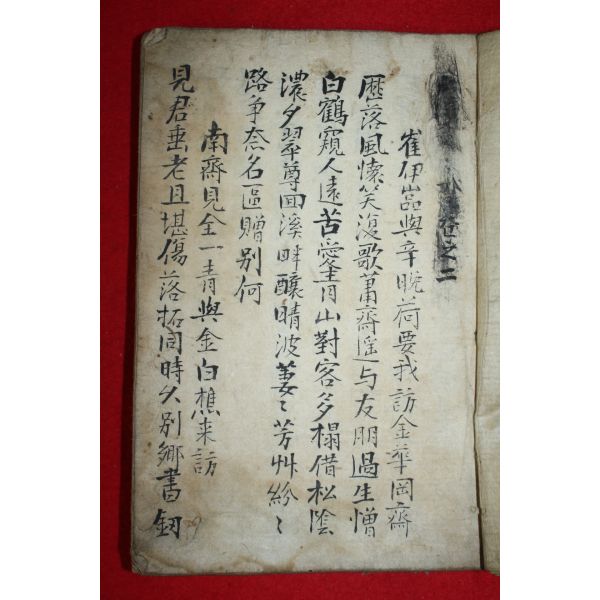 卷之二
崔伊嵒與辛晚荷要我訪金華岡齋
歷落風懷笑復歌蕭齋遥与友朋過生憎
白鶴窺人遠苦愛青山對客多榻借松陰
濃夕翠尊回溪畔釀晴波萋〻芳艸紛〻
路爭奈名區贈别何
南齋見全一青與金白樵来訪
見君垂老且堪傷落拓同時久别鄉書釰